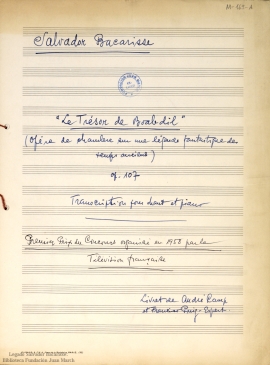 M-127-A
Salvador Bacarisse
"Le Trésor de Boabdil"
(Opéra de chambre sur une légende fantastique des
temps anciens)
op. 107
Transcription pour chant et piano
Premier Prix du Concours organisé en 1958 par la
Télévision française
Livret de André Camp
et François Puig-Espert
Legado Salvador Bacarisse.
Biblioteca Fundación Juan March